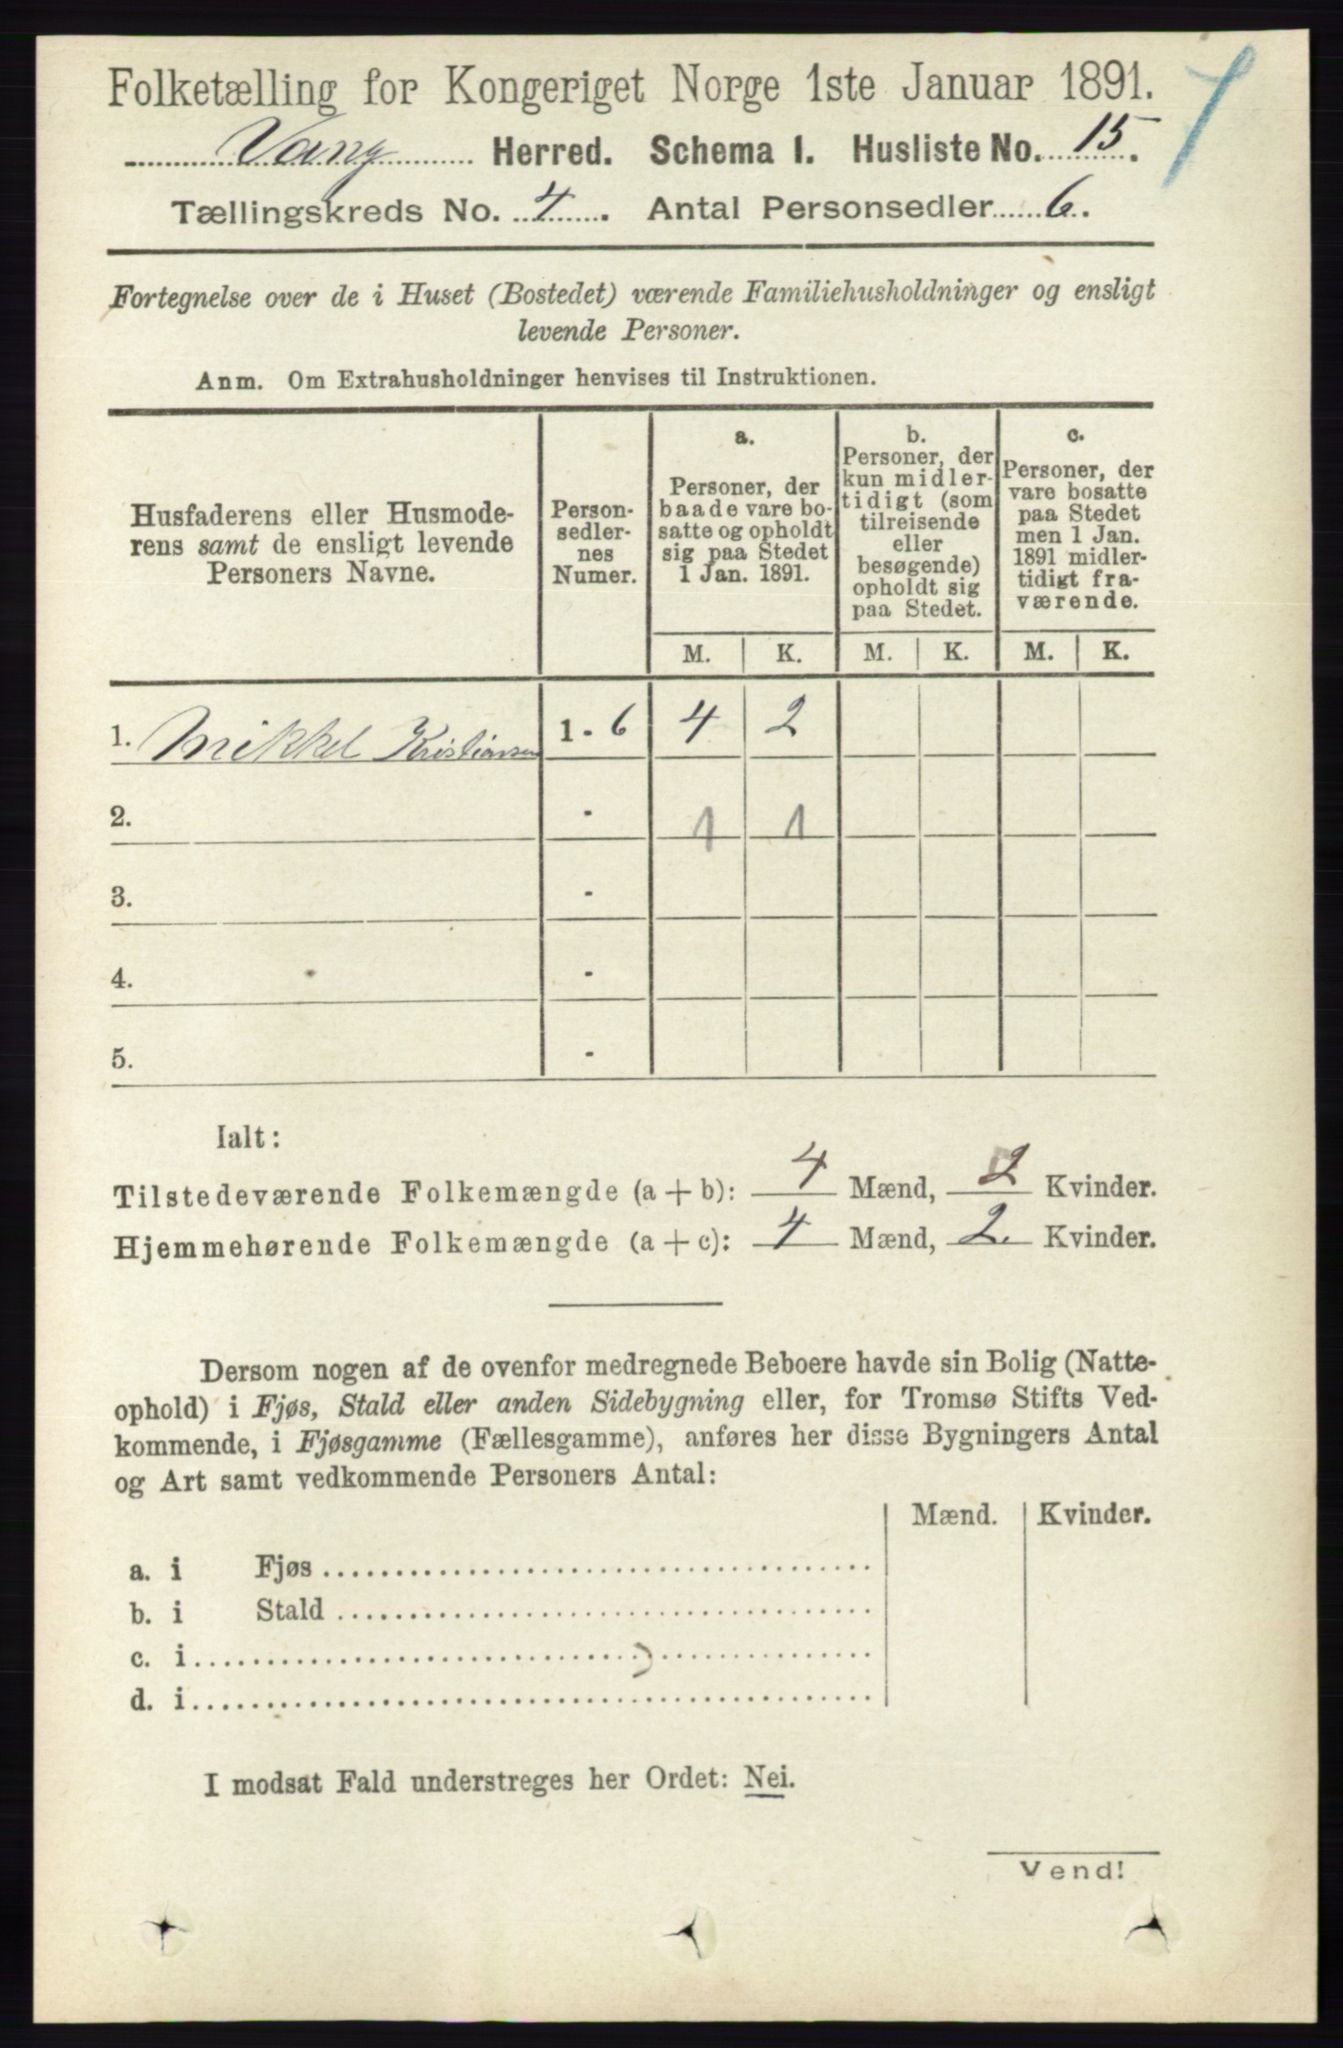 Folketælling for Kongeriget Norge 1ste Januar 1891.
Vang Herred. Schema I. Husliste No. 15.
Tællingskreds No. 4. Antal Personsedler 6.
Fortegnelse over de i Huset (Bostedet) værende Familiehusholdninger og ensligt
levende Personer.
Anm. Om Extrahusholdninger henvises til Instruktionen.
Husfaderens eller Husmode-
rens samt de ensligt levende
Personers Navne.
Person-
sedler-
nes
Numer.
a.
Personer, der
baade vare bo-
satte og opholdt
sig paa Stedet
1 Jan. 1891.
b.
Personer, der
kun midler-
tidigt (som
tilreisende
eller
besøgende)
opholdt sig
paa Stedet.
c.
Personer, der
vare bosatte
paa Stedet
men 1 Jan.
1891 midler-
tidigt fra-
værende.
M. K. M. K. M. K.
1. Mikkel Kristiansen 1 - 6 4 2
2. - 1 1
3. -
4. -
5. -
Ialt:
Tilstedeværende Folkemængde (a + b): 4 Mænd, 2 Kvinder.
Hjemmehørende Folkemængde (a + c): 4 Mænd, 2. Kvinder.
Dersom nogen af de ovenfor medregnede Beboere havde sin Bolig (Natte-
ophold) i Fjøs, Stald eller anden Sidebygning eller, for Tromsø Stifts Ved-
kommende, i Fjøsgamme (Fællesgamme), anføres her disse Bygningers Antal
og Art samt vedkommende Personers Antal:
Mænd. Kvinder.
a. i Fjøs
b. i Stald
c. i
d. i
I modsat Fald understreges her Ordet: Nei.
Vend!